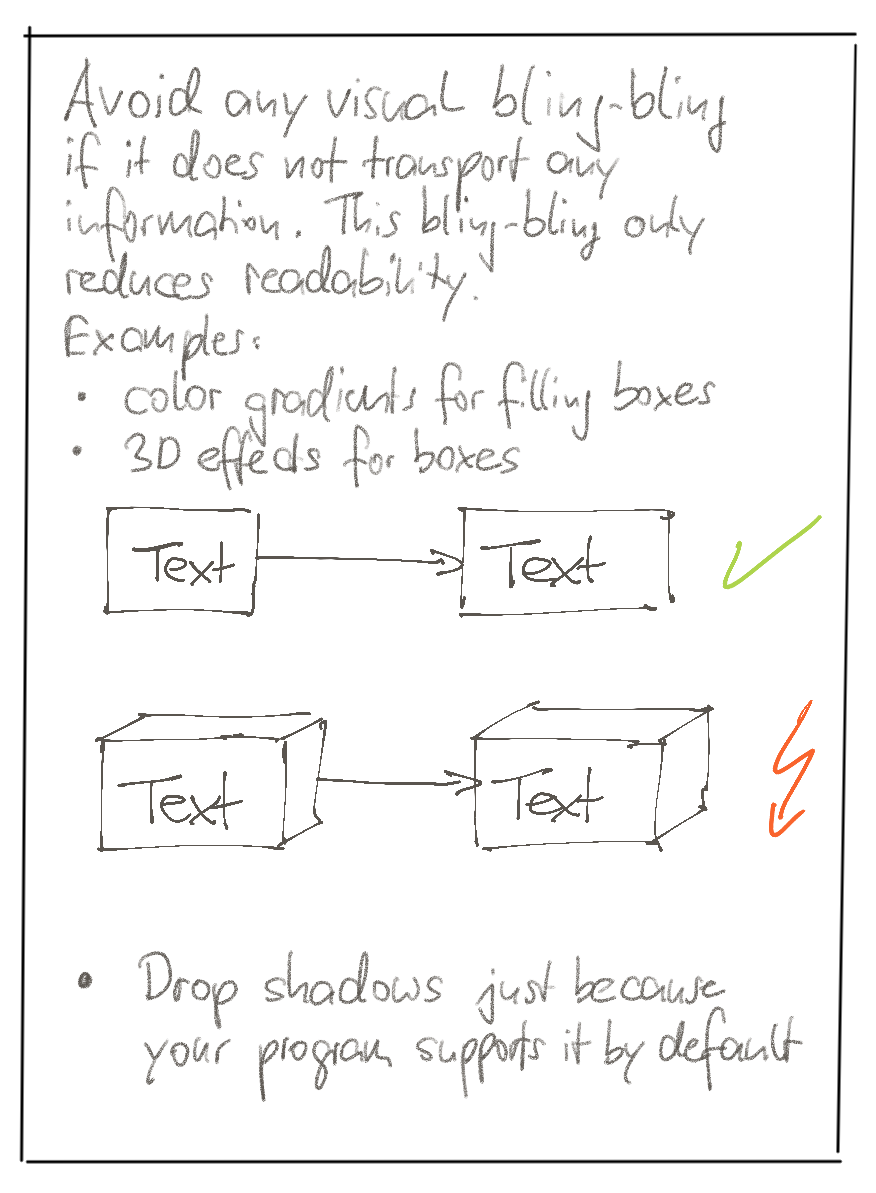 Avoid any visual bling-bling
if it does not transport any
information. This bling-bling only
reduces readability.
Examples:
• color gradients for filling boxes
• 3D effects for boxes
Text
Text
Text
Text
• Drop shadows just because
your program supports it by default